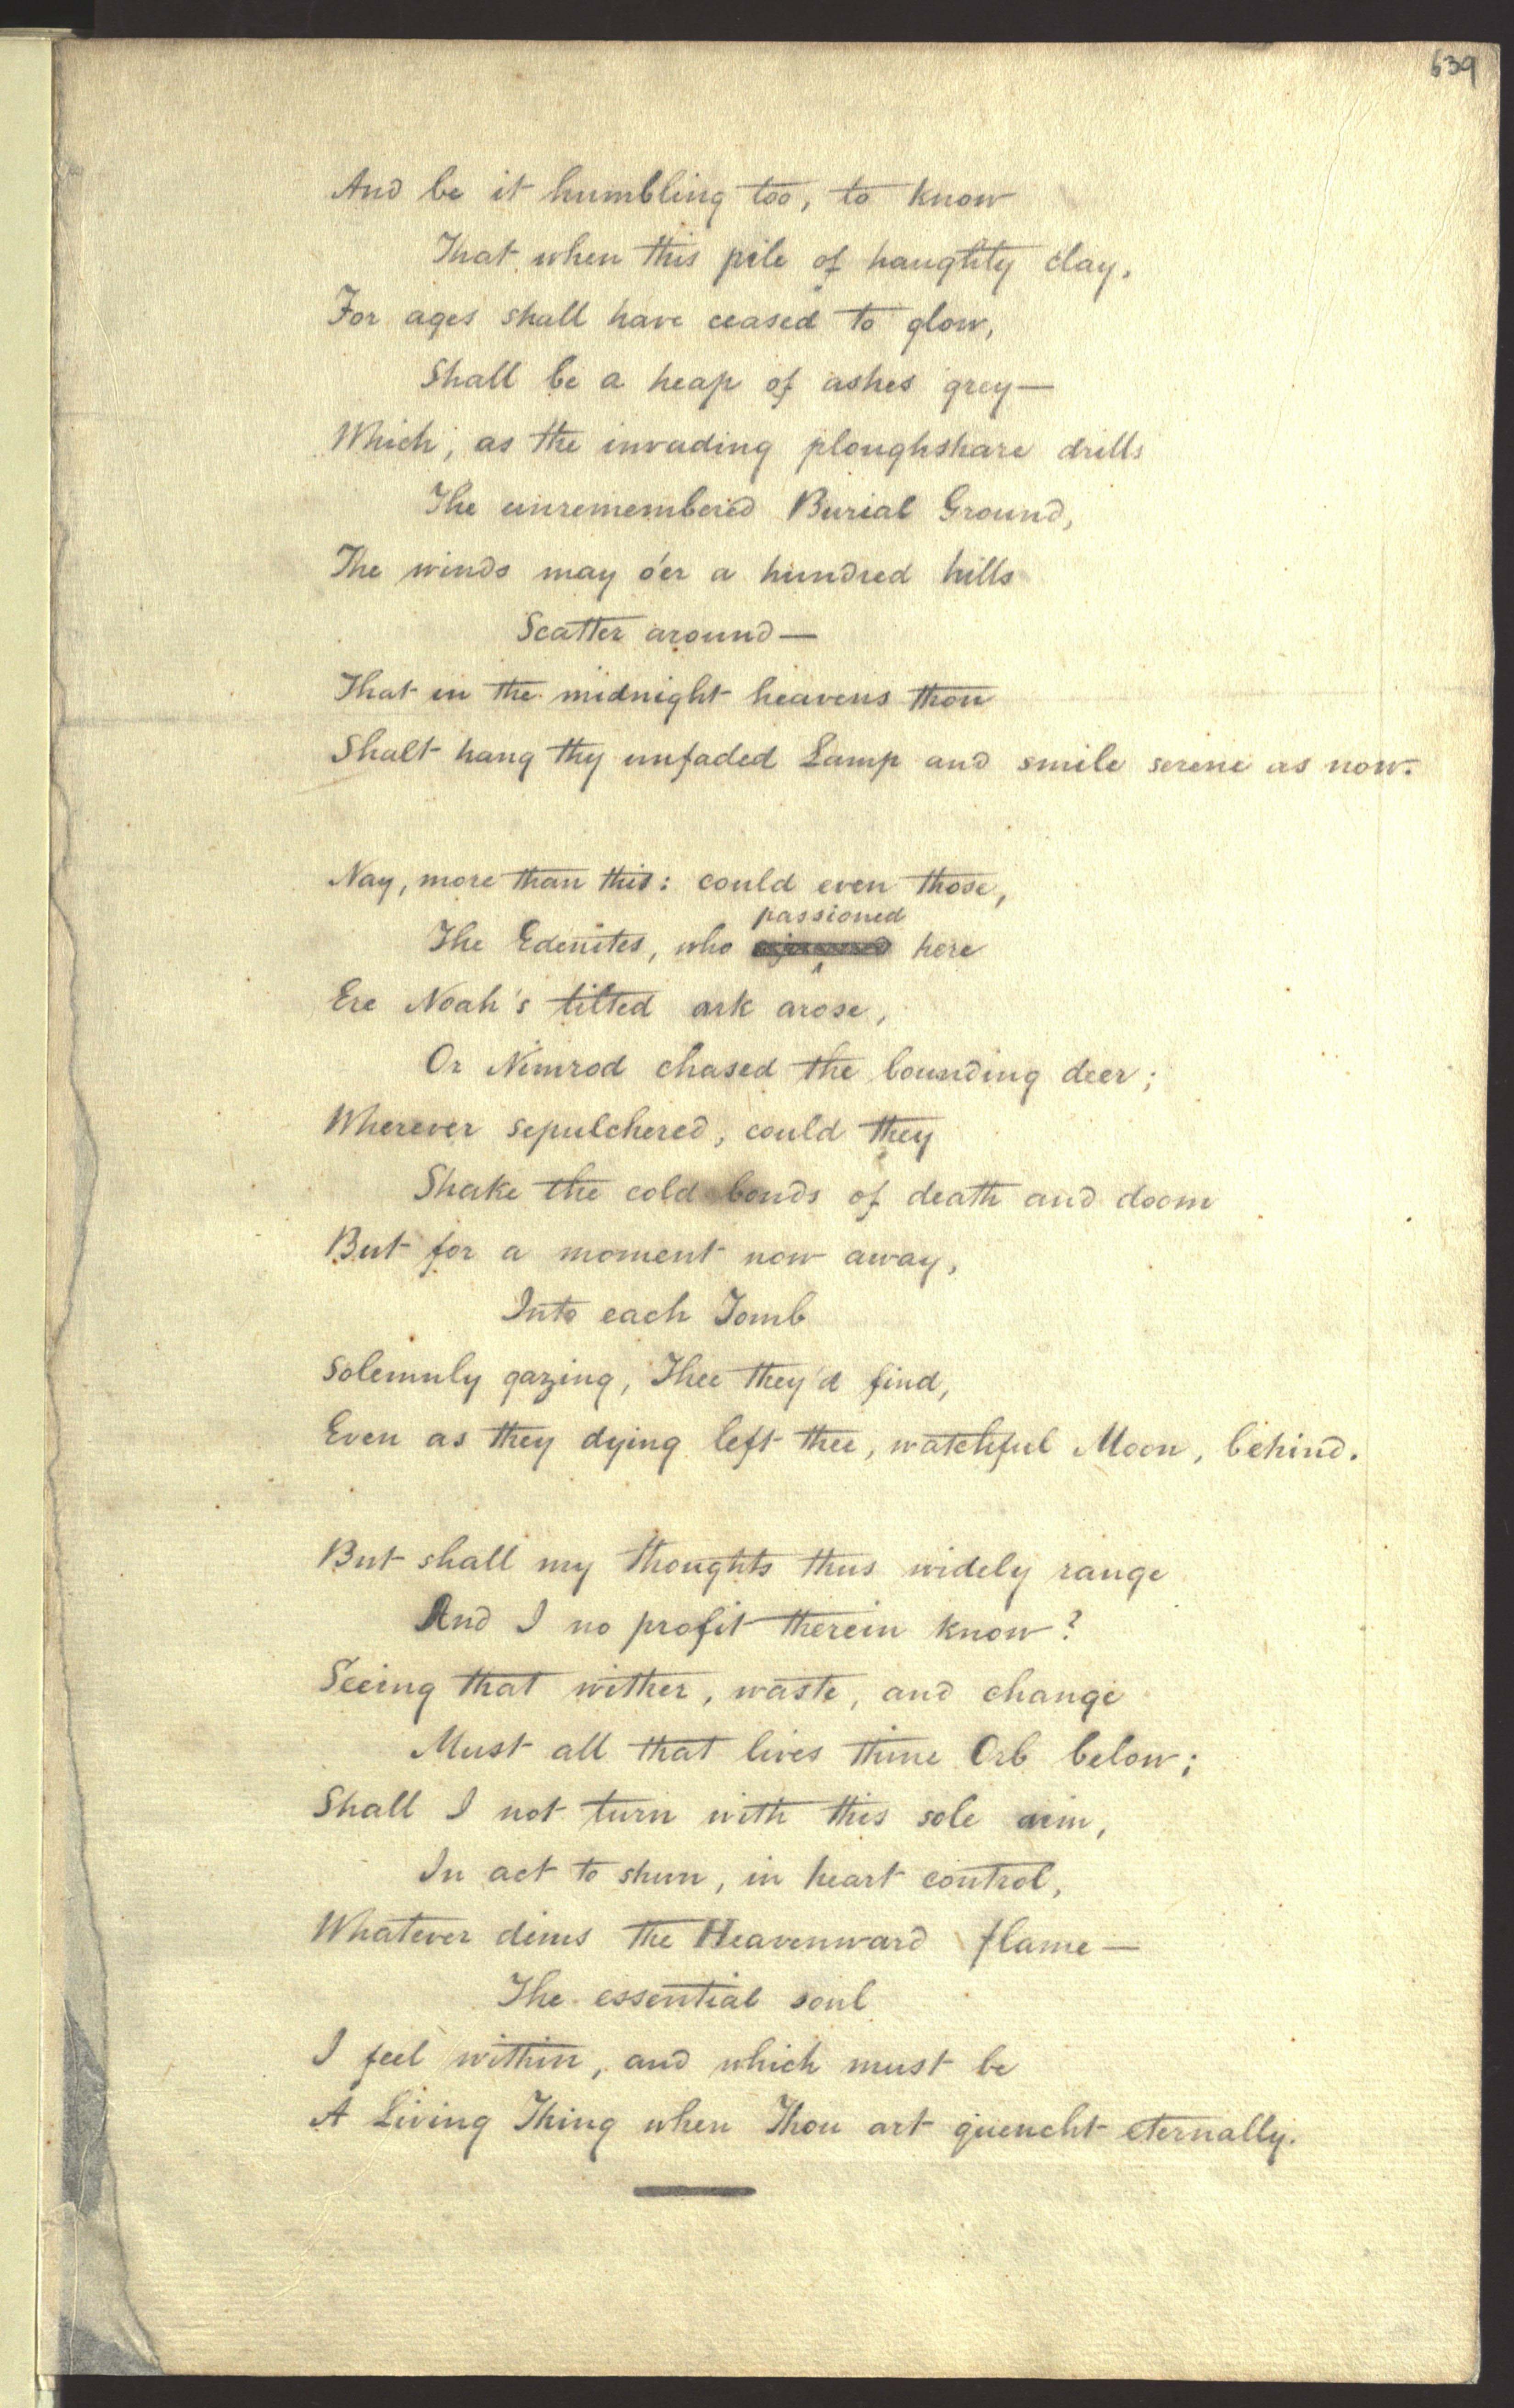 639
And be it humbling too, to know
That when this pile of haughty clay,
For ages shall have ceased to glow,
Shall be a heap of ashes grey—
Which, as the invading ploughshare drills
The unremembered Burial Ground,
The winds may o'er a hundred hills
Scatter around—
That in the midnight heavens thou
Shalt hang thy unfaded Lamp and smile serene as now.
Nay, more than this: could even those,
passioned
The Edenites, who here
Ere Noah's tilted ark arose,
Or Nimrod chased the bounding deer;
Wherever sepulchered, could they
Shake the cold bonds of death and doom
But for a moment now away,
Into each Tomb
Solemnly gazing, Thee they'd find,
Even as they dying left thee, watchful Moon, behind.
But shall my thoughts thus widely range
And I no profit therein know?
Seeing that wither, waste, and change
Must all that lives thine Orb below;
Shall I not turn with this sole aim,
In act to shun, in heart control,
Whatever dims the Heavenward flame—
The essential soul
I feel within, and which must be
A Living Thing when Thou art quencht eternally.